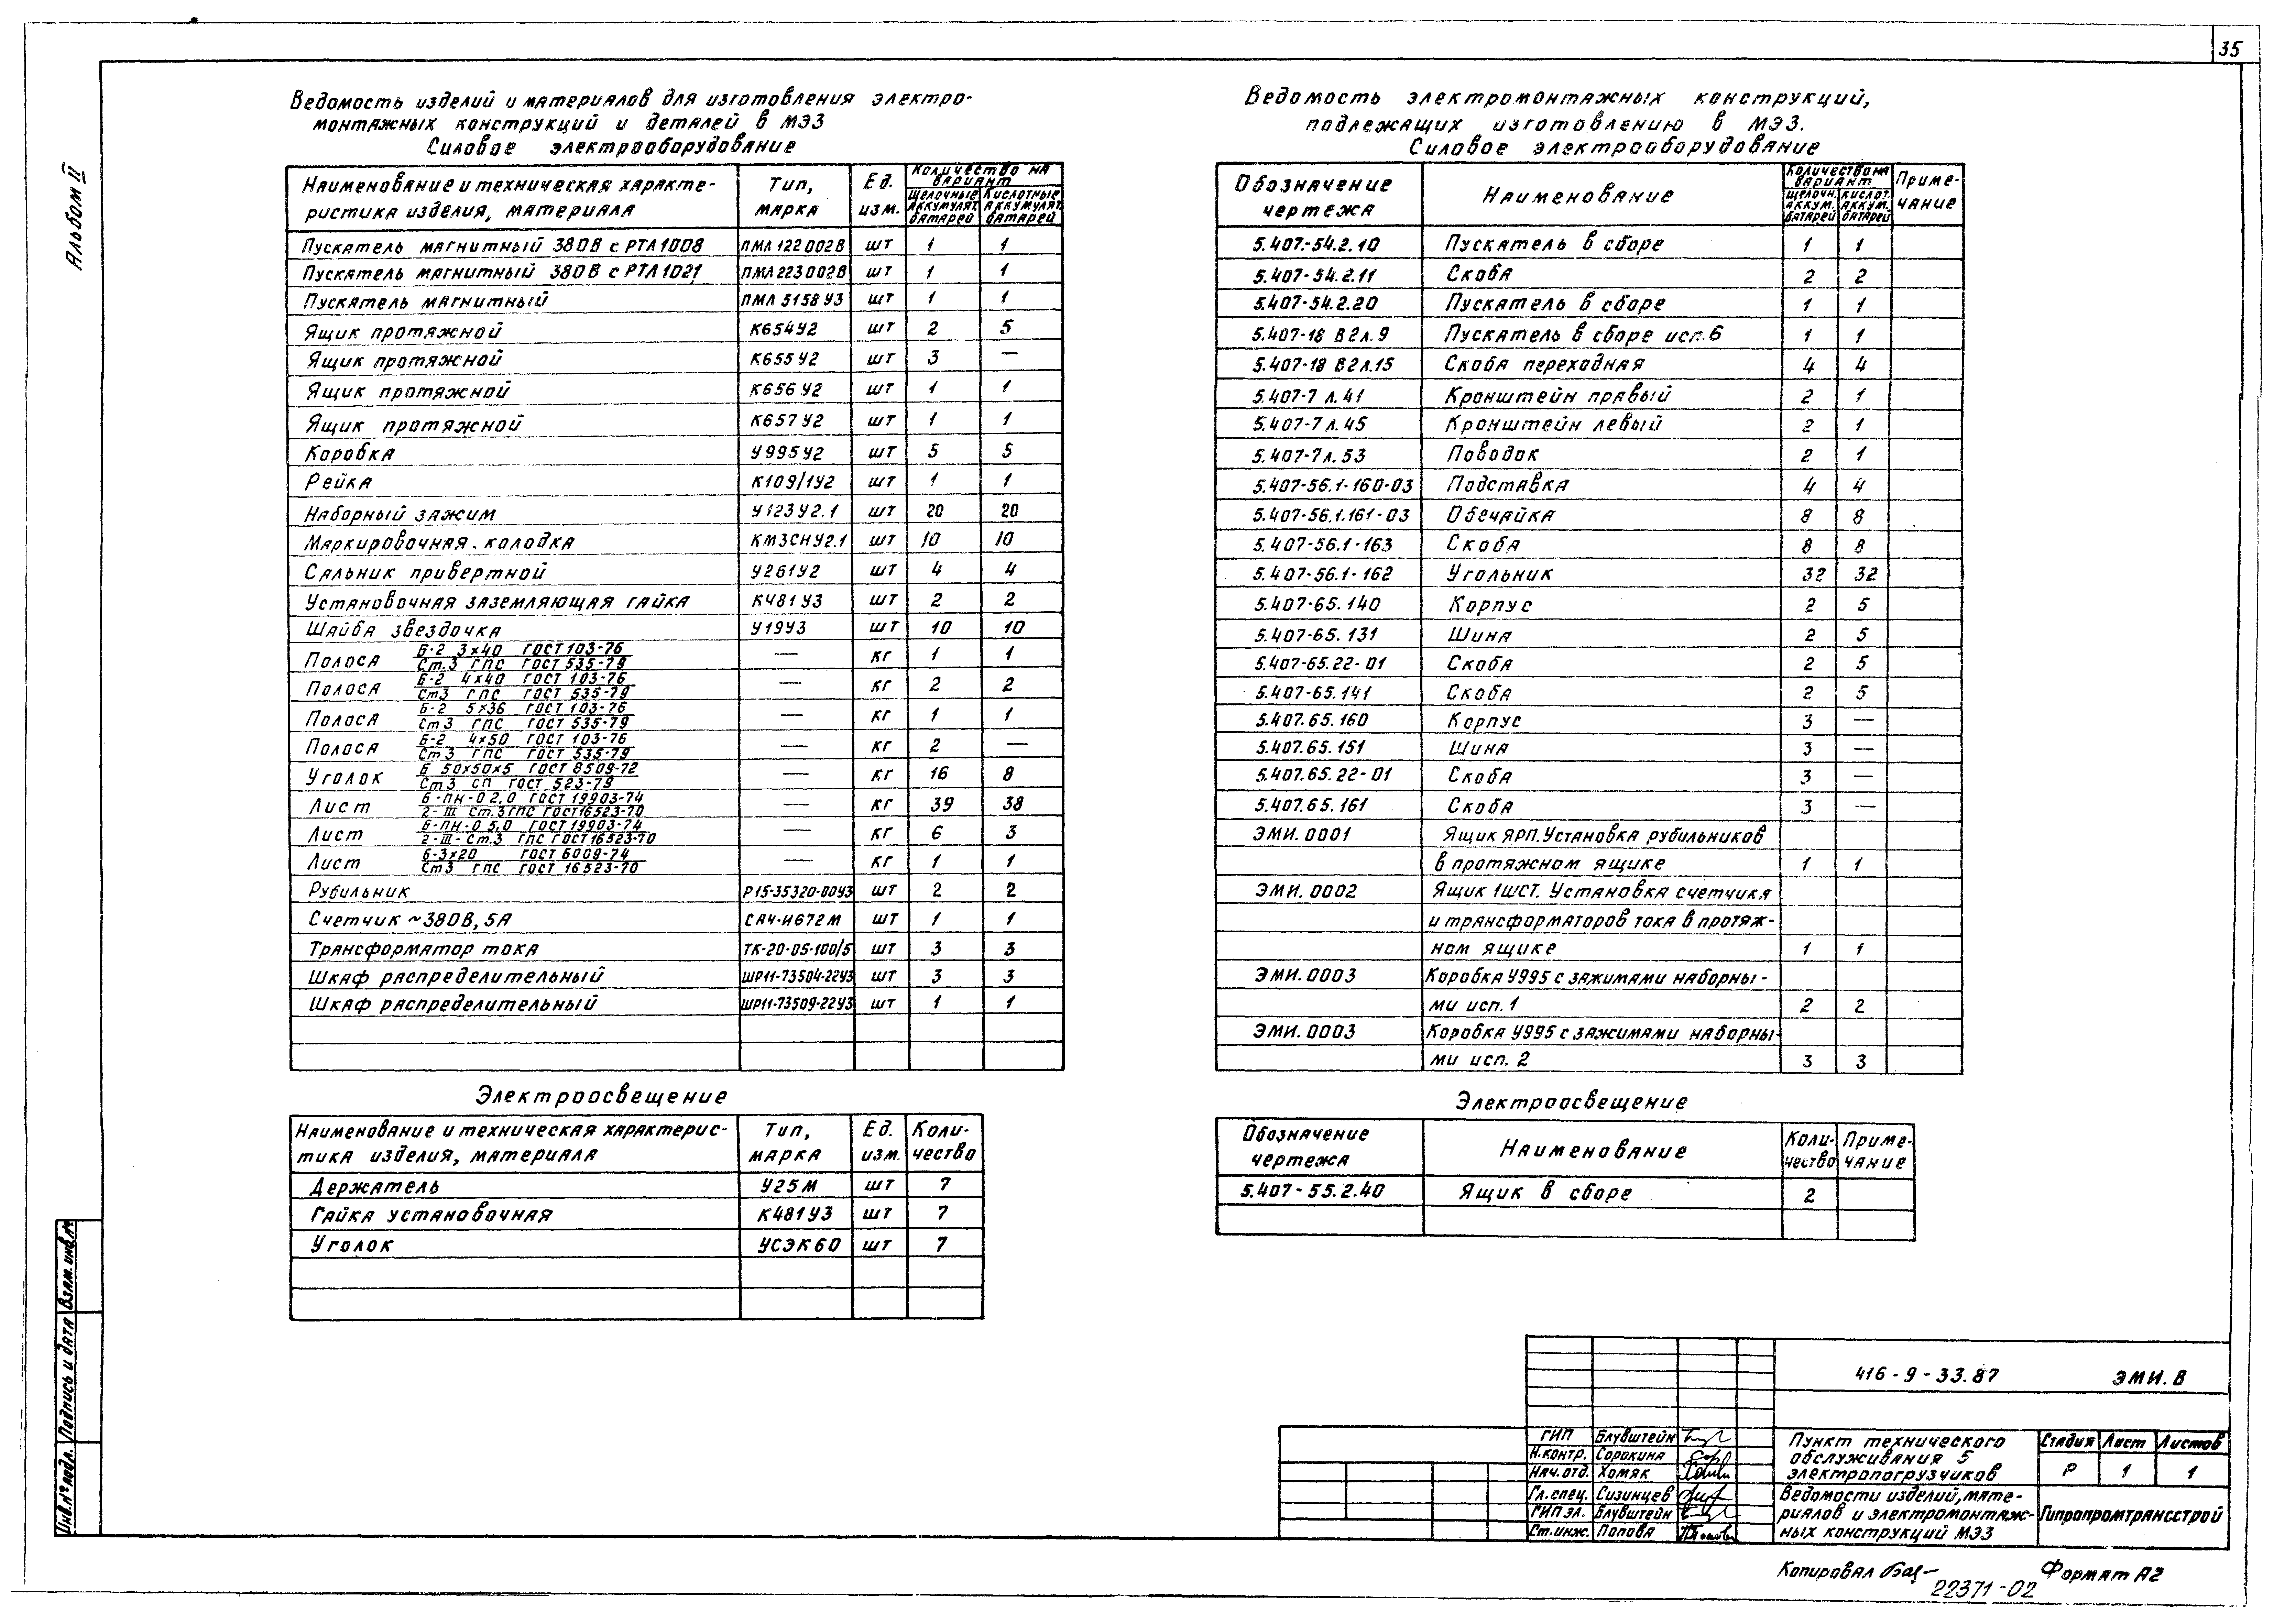 35
Альбом II
Ведомость изделий и материалов для изготовления электро-
монтажных конструкций и деталей в МЭЗ
Силовое электрооборудование
Наименование и техническая характе-
ристика изделия, материала
Тип,
марка
Ед.
изм.
Количество на
вариант
Щелочные
аккумулят.
батарей
Кислотные
аккумулят.
батарей
Пускатель магнитный 380В с РТЛ1008 ПМЛ 122002В шт 1 1
Пускатель магнитный 380В с РТЛ1021 ПМЛ 223002В шт 1 1
Пускатель магнитный ПМЛ 5158У3 шт 1 1
Ящик протяжной К654У2 шт 2 5
Ящик протяжной К655У2 шт 3 —
Ящик протяжной К656У2 шт 1 1
Ящик протяжной К657У2 шт 1 1
Коробка У995У2 шт 5 5
Рейка К109/1У2 шт 1 1
Наборный зажим У123У2.1 шт 20 20
Маркировочная колодка КМ3СНУ2.1 шт 10 10
Сальник привертной У261У2 шт 4 4
Установочная заземляющая гайка К481У3 шт 2 2
Шайба звездочка У19У3 шт 10 10
Полоса Б-2 3×40 ГОСТ 103-76 — кг 1 1
Ст.3 ГПС ГОСТ 535-79
Полоса Б-2 4×40 ГОСТ 103-76 — кг 2 2
Ст3 ГПС ГОСТ 535-79
Полоса Б-2 5×36 ГОСТ 103-76 — кг 1 1
Ст3 ГПС ГОСТ 535-79
Полоса Б-2 4×50 ГОСТ 103-76 — кг 2 —
Ст3 ГПС ГОСТ 535-79
Уголок Б 50×50×5 ГОСТ 8509-72 — кг 16 8
Ст3 сп ГОСТ 523-79
Лист Б-ПН-О 2,0 ГОСТ 19903-74 — кг 39 38
2-III Ст.3ГПС ГОСТ16523-70
Лист Б-ПН-О 5,0 ГОСТ 19903-74 — кг 6 3
2-III-Ст.3 ГПС ГОСТ16523-70
Лист Б-3×20 ГОСТ 6009-74 — кг 1 1
Ст3 ГПС ГОСТ 16523-70
Рубильник Р15-35320-00У3 шт 2 2
Счетчик ~380В, 5А СА4-И672М шт 1 1
Трансформатор тока ТК-20-05-100/5 шт 3 3
Шкаф распределительный ШР11-73504-22У3 шт 3 3
Шкаф распределительный ШР11-73509-22У3 шт 1 1
Электроосвещение
Наименование и техническая характерис-
тика изделия, материала
Тип,
марка
Ед.
изм.
Коли-
чество
Держатель У25М шт 7
Гайка установочная К481У3 шт 7
Уголок УСЭК60 шт 7
Ведомость электромонтажных конструкций,
подлежащих изготовлению в МЭЗ.
Силовое электрооборудование
Обозначение
чертежа
Наименование
Количество на
вариант
щелочн.
аккум.
батарей
кислот.
аккум.
батарей
Приме-
чание
5.407-54.2.10 Пускатель в сборе 1 1
5.407-54.2.11 Скоба 2 2
5.407-54.2.20 Пускатель в сборе 1 1
5.407-18 В2л.9 Пускатель в сборе исп.6 1 1
5.407-18 В2л.15 Скоба переходная 4 4
5.407-7 л.41 Кронштейн правый 2 1
5.407-7л.45 Кронштейн левый 2 1
5.407-7л.53 Поводок 2 1
5.407-56.1-160-03 Подставка 4 4
5.407-56.1.161-03 Обечайка 8 8
5.407-56.1-163 Скоба 8 8
5.407-56.1-162 Угольник 32 32
5.407-65.140 Корпус 2 5
5.407-65.131 Шина 2 5
5.407-65.22-01 Скоба 2 5
5.407-65.141 Скоба 2 5
5.407.65.160 Корпус 3 —
5.407.65.151 Шина 3 —
5.407.65.22-01 Скоба 3 —
5.407.65.161 Скоба 3 —
ЭМИ.0001 Ящик ЯРП.Установка рубильников
в протяжном ящике 1 1
ЭМИ.0002 Ящик 1ШСТ. Установка счетчика
и трансформаторов тока в протяж-
ном ящике 1 1
ЭМИ.0003 Коробка У995 с зажимами наборны-
ми исп.1 2 2
ЭМИ.0003 Коробка У995 с зажимами наборны-
ми исп. 2 3 3
Электроосвещение
Обозначение
чертежа
Наименование
Коли-
чество
Приме-
чание
5.407-55.2.40 Ящик в сборе 2
Инв.№подл. Подпись и дата Взам.инв.№
416-9-33.87 ЭМИ.В
ГИП Блувштейн
Н.контр. Сорокина
Нач.отд. Хомяк
Гл.спец. Сизинцев
ГИП эл. Блувштейн
Ст.инж. Попова
Пункт технического
обслуживания 5
электропогрузчиков
Стадия Лист Листов
Р 1 1
Ведомости изделий, мате-
риалов и электромонтаж-
ных конструкций МЭЗ
Гипропромтрансстрой
Копировал
Формат А2
22371-02